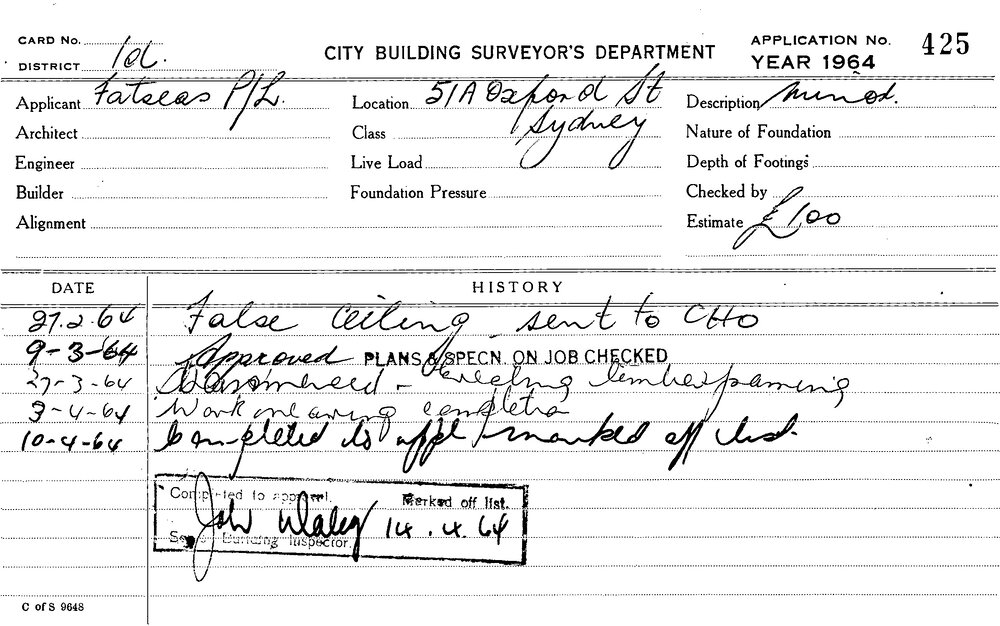 CARD No.
DISTRICT 1d.
CITY BUILDING SURVEYOR'S DEPARTMENT
APPLICATION No. 425
YEAR 1964
Applicant Fatseas P/L. Location 51A Oxford St Description Minor.
Architect Class Sydney Nature of Foundation
Engineer Live Load Depth of Footings
Builder Foundation Pressure Checked by
Alignment Estimate £100
DATE HISTORY
27.2.64 False Ceiling sent to CHO
9-3-64 Approved PLANS & SPECN. ON JOB CHECKED
27-3-64 Commenced - erecting timber framing
3-4-64 Work nearing completion
10-4-64 Completed to appl marked off list.
Completed to approval. Marked off list.
John 14.4.64
Senior Building Inspector.
C of S 9648